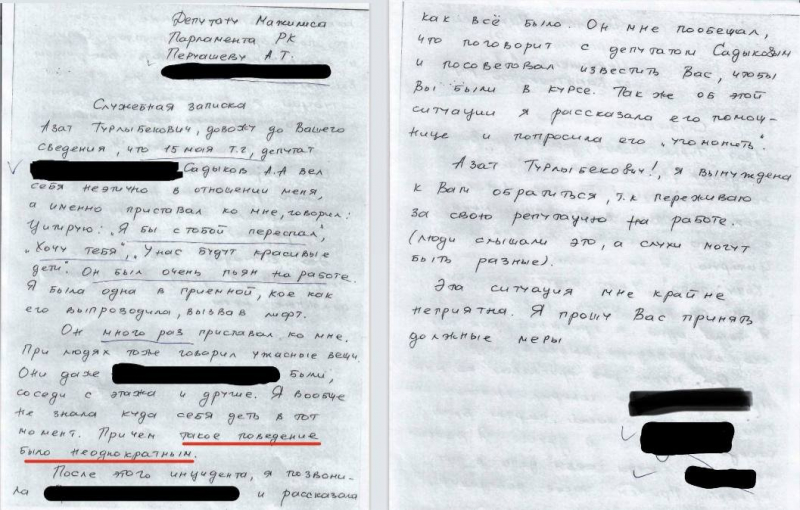 Депутату Мажилиса
Парламента РК
Перуашеву А.Т.
Служебная записка
Азат Турлыбекович, довожу до Вашего
сведения, что 15 мая т.г, депутат
Садыков А.А вел
себя неэтично в отношении меня,
а именно приставал ко мне, говорил:
Цитирую: „Я бы с тобой переспал",
„Хочу тебя", „У нас будут красивые
дети". Он был очень пьян на работе.
Я была одна в приемной, кое как
его выпроводила, вызвав лифт.
Он много раз приставал ко мне.
При людях тоже говорил ужасные вещи.
Они даже были,
соседи с этажа и другие. Я вообще
не знала куда себя деть в тот
момент. Причем такое поведение
было неоднократным.
После этого инцидента, я позвони-
ла и рассказала
как всё было. Он мне пообещал,
что поговорит с депутатом Садыковым
и посоветовал известить Вас, чтобы
Вы были в курсе. Так же об этой
ситуации я рассказала его помощ-
нице и попросила его „угомонить".
Азат Турлыбекович!, я вынуждена
к Вам обратиться, т.к переживаю
за свою репутацию на работе.
(люди слышали это, а слухи могут
быть разные).
Эта ситуация мне крайне
неприятна. Я прошу Вас принять
должные меры